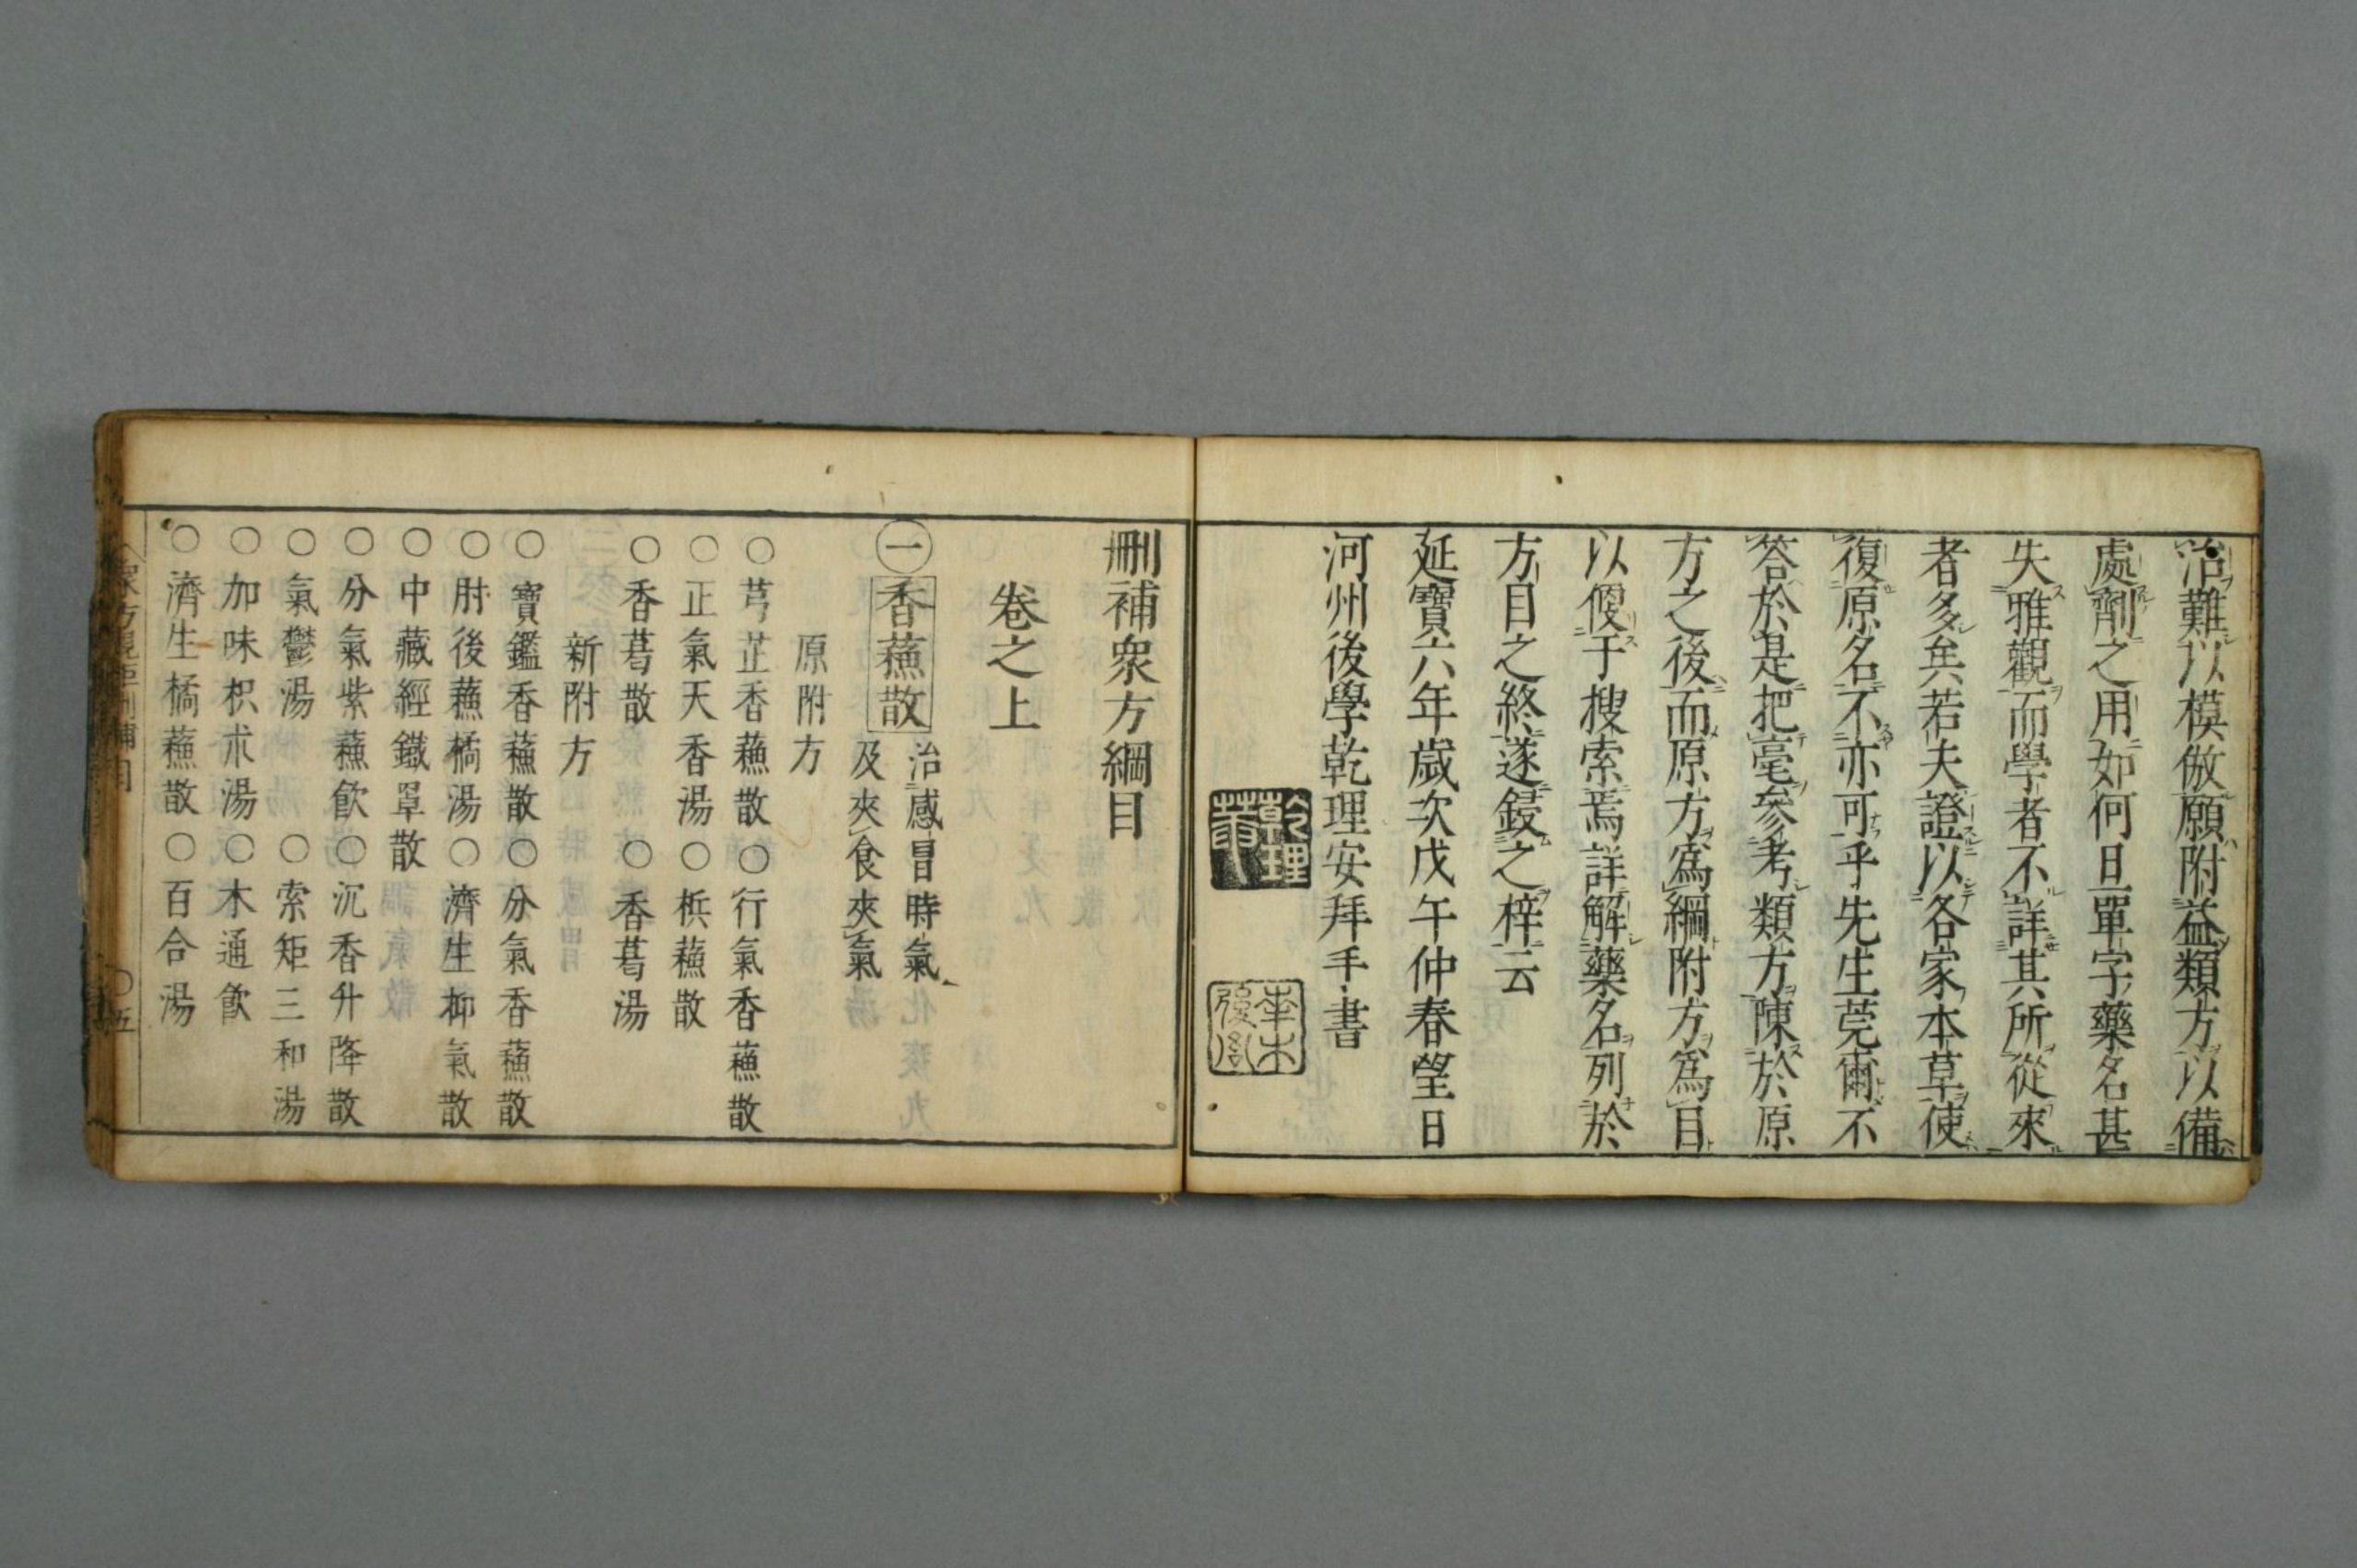 治難以模倣願附益類方以備
處劑之用如何且單字藥名甚
失雅觀而學者不詳其所從來
者多矣若夫證以各家本草使
復原名不亦可乎先生莞爾不
答於是把毫參考類方陳於原
方之後而原方爲綱附方爲目
以便于搜索焉詳解藥名列於
方目之終遂鋟之梓云
延寶六年歲次戊午仲春望日
河州後學乾理安拜手書
乾理
刪補衆方綱目
卷之上
㊀香蘓散 治感冒時氣
及夾食夾氣
原附方
○芎芷香蘓散○行氣香蘓散
○正氣天香湯○梹蘓散
○香葛散○香葛湯
新附方
○寶鑑香蘓散○分氣香蘓散
○肘後蘓橘湯○濟生抑氣散
○中藏經鐵罩散
○分氣紫蘓飮○沉香升降散
○氣鬱湯○索矩三和湯
○加味枳朮湯○木通飮
○濟生橘蘓散○百合湯
衆方規矩刪補目 ○五